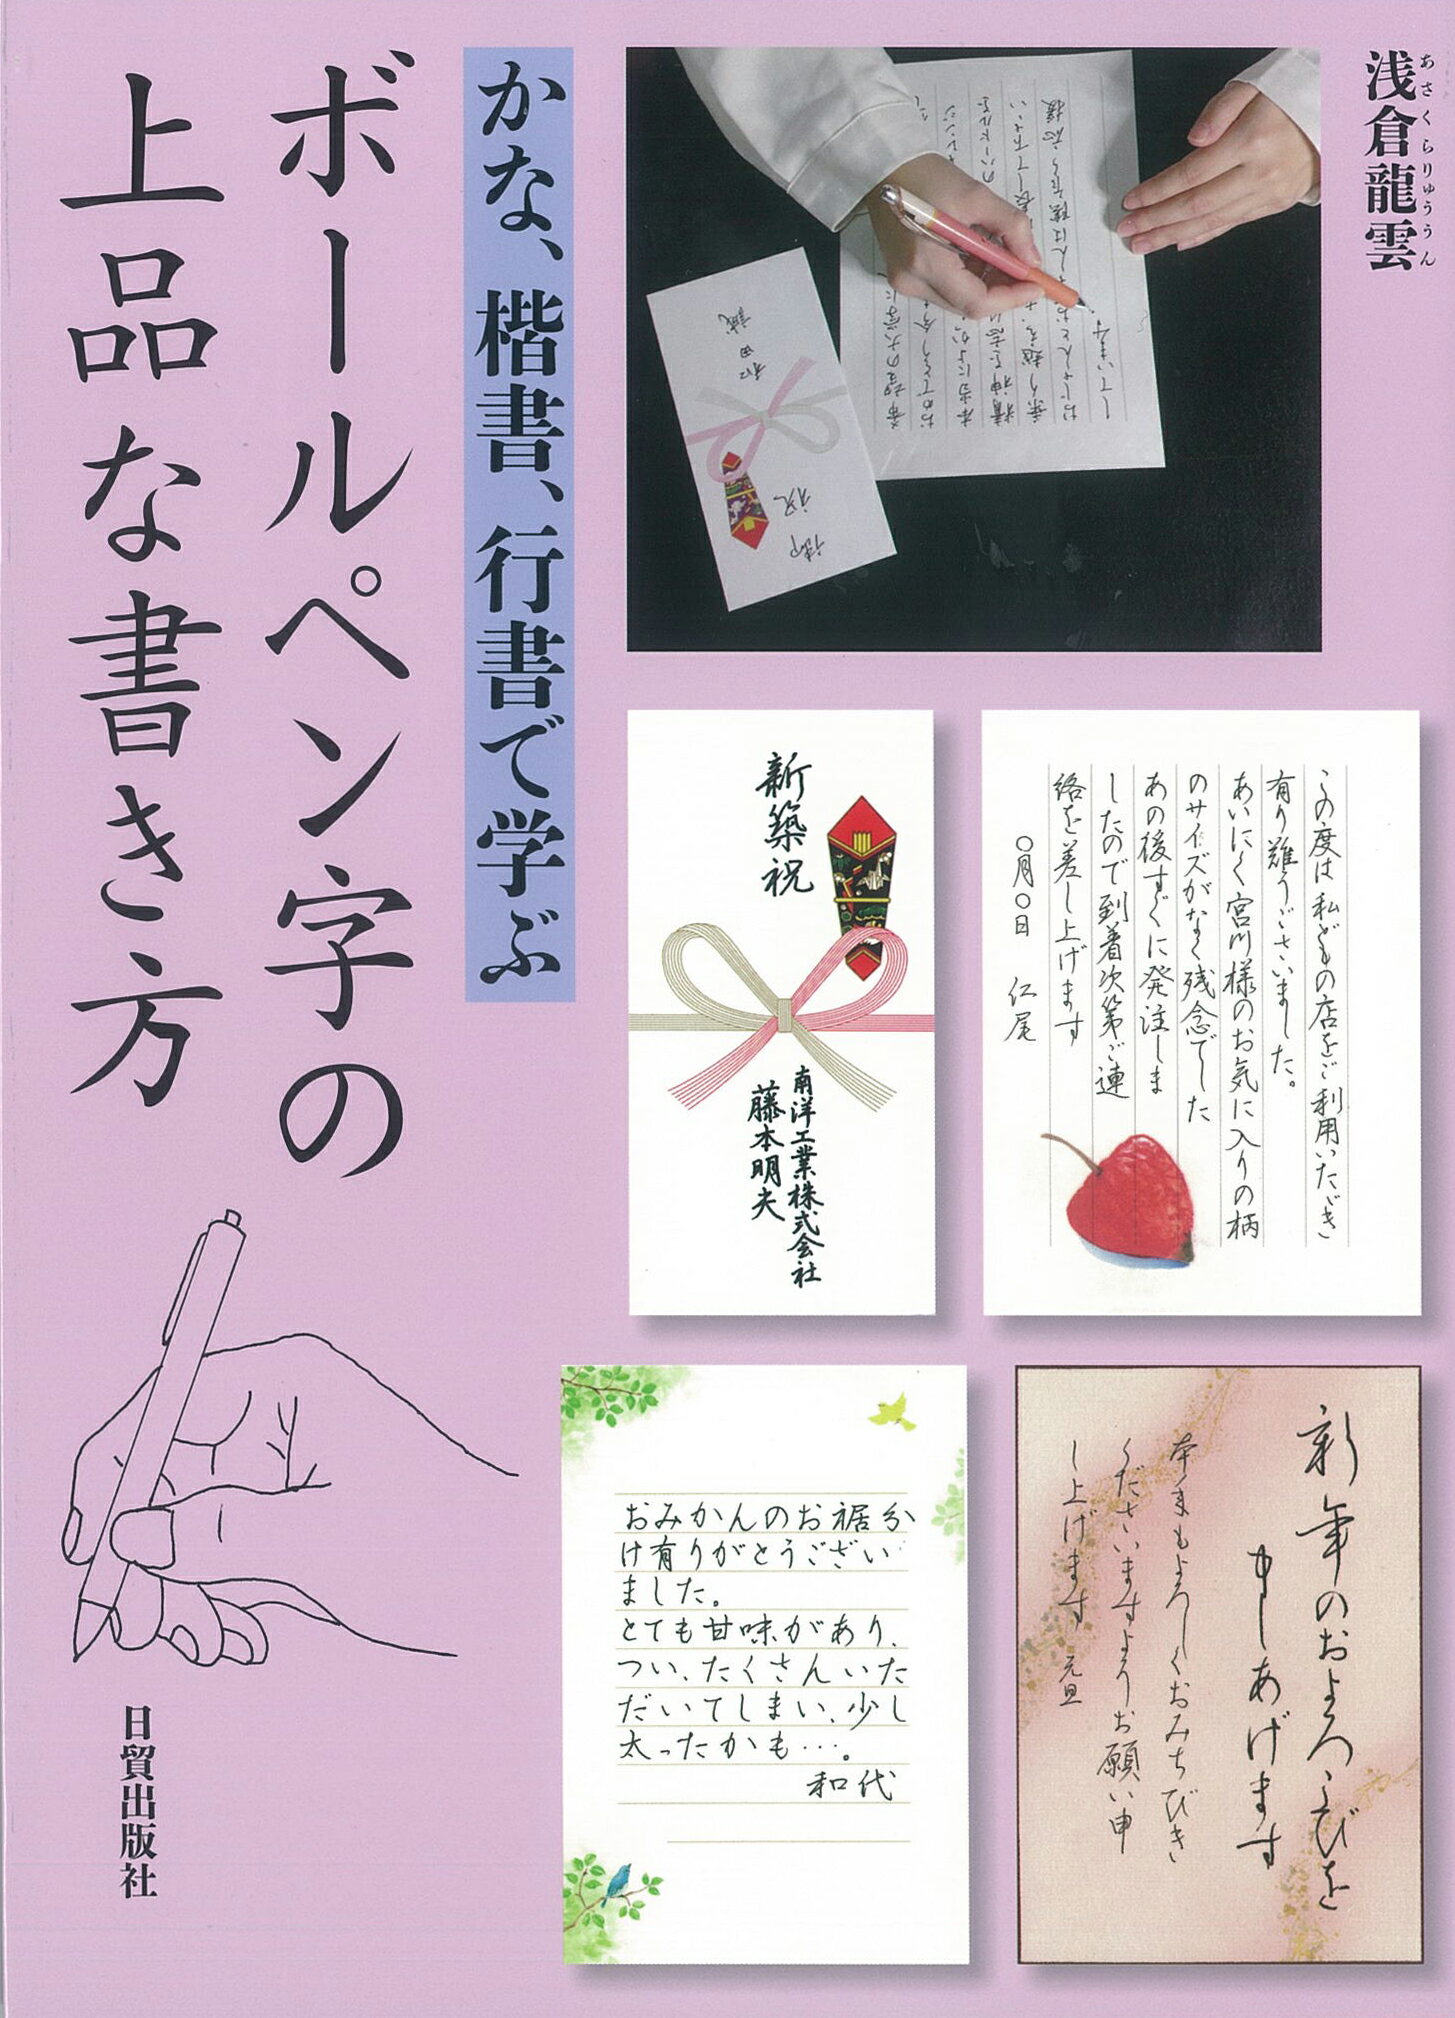 浅倉龍雲
あさくらりゅううん
かな、楷書、行書で学ぶ
ボールペン字の
上品な書き方
御祝
和田 誠
希望の大学に
おめでとう
本当によか
精神を志
乗り越え、
おじさんとお
しています。
新築祝
南洋工業株式会社
藤本明夫
この度は私どもの店をご利用いただき
有り難うございました。
あいにく宮川様のお気に入りの柄
のサイズがなく残念でした
あの後すぐに発注しま
したので到着次第ご連
絡を差し上げます
〇月〇日 仁尾
おみかんのお裾分
け有りがとうござい
ました。
とても甘味があり、
つい、たくさんいた
だいてしまい、少し
太ったかも…。
和代
新年のおよろこびを
申しあげます
本年もよろしくおみちびき
くださいますようお願い申
し上げます 元旦
日貿出版社